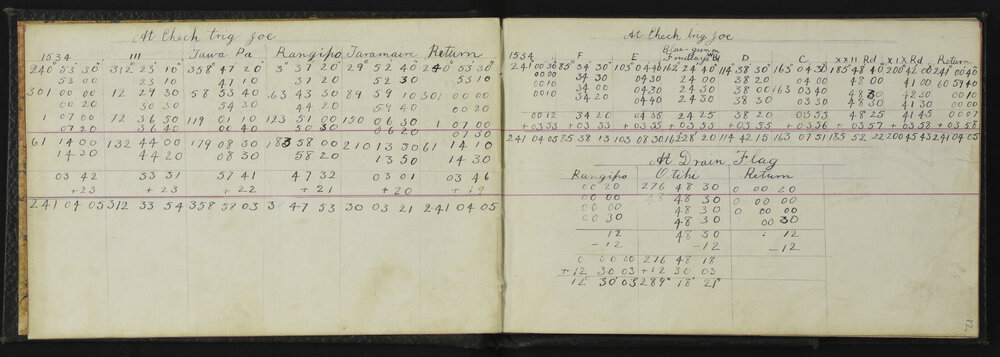 At Check trig Joe
1534 111 Tawa Pa Rangipo Taramain Return
240° 53 30" 312° 23 10" 358° 47 20" 3° 37 20" 29° 52 40" 240° 53 30"
53 00 23 10 41 10 37 20 52 30 53 10
301 00 00 12 29 30 58 53 40 63 43 30 89 59 10 301 00 00
00 20 30 30 54 30 44 20 59 40 00 20
1 07 00 72 36 50 119 01 10 123 51 00 150 06 30 1 07 00
07 20 36 40 00 40 50 30 06 20 07 30
61 14 00 132 44 00 179 08 30 183 58 00 210 13 30 61 14 10
14 30 44 20 08 30 58 20 13 50 14 30
03 42 33 31 57 41 47 32 03 01 03 46
+23 +23 +22 +21 +20 +19
241 04 05 312 33 54 358 58 03 3 47 53 30 03 21 241 04 05
At Check trig Joe
Blue-gummn
1534 F E D C XXII Rd XIX Rd Return
241 00 30 85° 34 30" 103° 04 40 162° 24 40" 114° 38 30" 163° 04 30 185 48 40 200 42 00 241 00 40
00 00 34 30 04 30 24 00 38 20 04 00 48 00 41 00 60 59 40
00 10 34 00 04 30 24 30 38 00 163 03 40 48 30 42 30 00 10
00 10 34 20 04 40 24 30 38 30 03 30 48 30 41 30 00 00
00 12 34 20 04 35 24 25 38 20 03 55 48 25 41 45 00 07
+03 53 +03 53 +03 55 +03 55 +03 55 +03 56 +03 57 +03 58 +03 58
241 04 05 85 38 13 103 08 30 162 28 20 114 42 15 163 07 51 185 52 22 200 45 43 241 04 05
At Drain Flag
Rangipo Otihi Return
00 20 276 48 30 0 00 20
00 00 48 48 30 0 00 00
00 00 48 30 0 00 00
00 30 48 30 00 30
12 48 30 12
-12 -12 -12
0 00 00 276 48 18
+12 30 03 +12 30 03
12° 30' 03" 289° 18' 21"
12